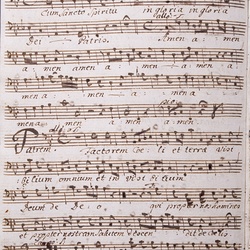 Cum Sancto Spiritu in gloria in gloria
Dei Patris. Amen a
men amen amen a
men a men a
men a men amen.
Patrem. Factorem Coeli et terrae visi
bilium omnium et in visi bilium
Deum de Deo. qui propter nos homines
et propter nostram salutem descen dit de coelis